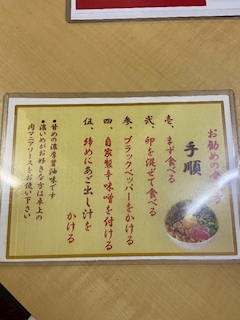 お勧めの
手順
壱、まず食べる
弐、卵を混ぜて食べる
参、ブラックペッパーをかける
四、自家製辛味噌を付ける
伍、締めにあご出し汁を
かける
●甘めの濃厚醤油味です
●濃いめがお好きな方は卓上の
肉マニアソースをお使い下さい